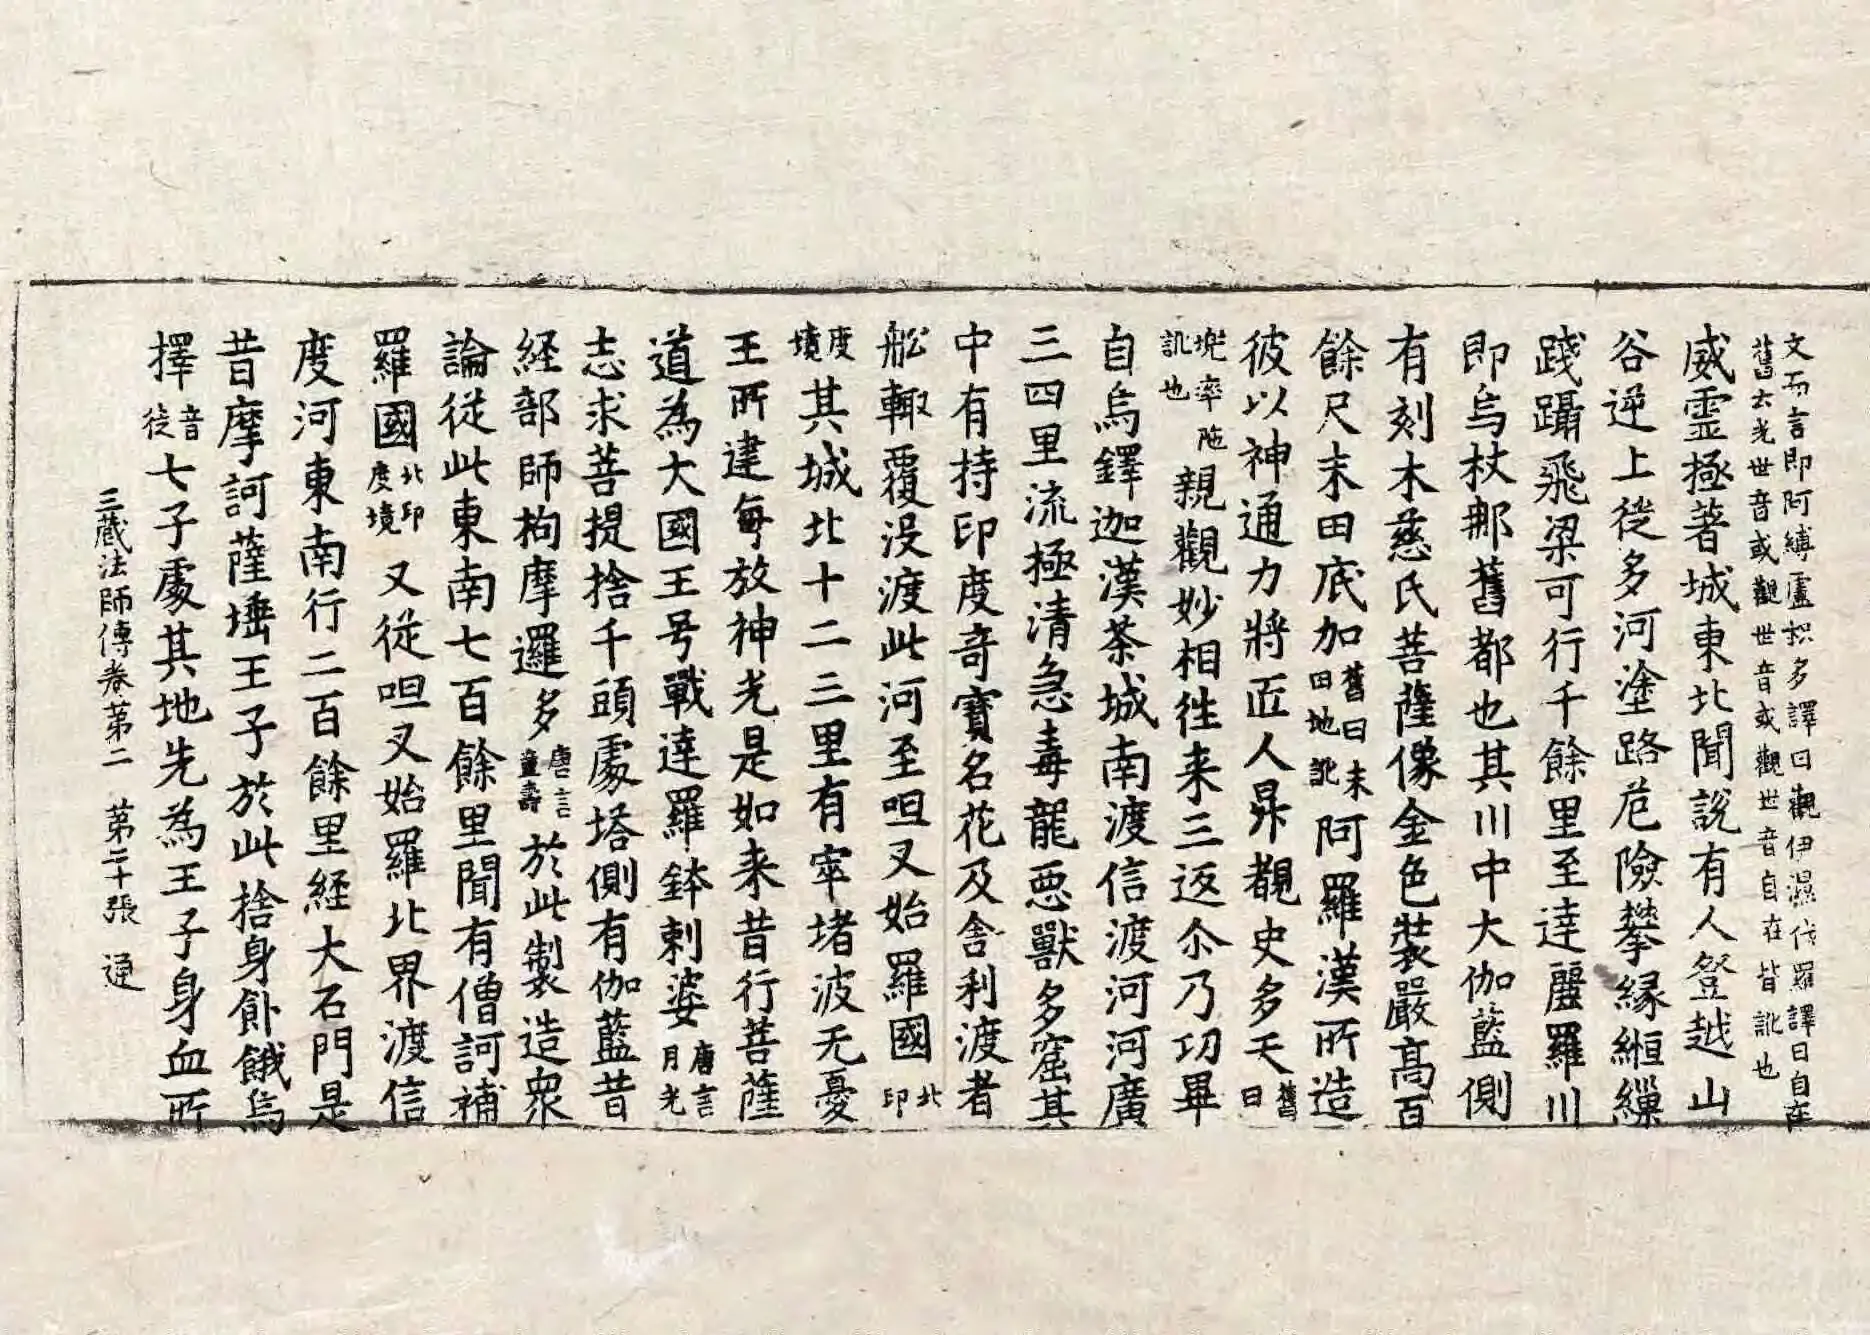 文而言即阿縛盧枳多譯曰觀伊濕伐羅譯曰自在
舊云光世音或觀世音或觀世音自在皆訛也
威霊極著城東北聞說有人登越山
谷逆上徙多河塗路危險攀縁絚繅
踐躡飛梁可行千餘里至達麗羅川
即烏杖那舊都也其川中大伽藍側
有刻木慈氏菩薩像金色裝嚴髙百
餘尺末田底加舊曰末田地訛阿羅漢所造
彼以神通力將匠人昇覩史多天舊曰
兠率陁訛也親觀妙相徃来三返尒乃功畢
自烏鐸迦漢荼城南渡信渡河河廣
三四里流極清急毒龍惡獸多窟其
中有持印度奇寶名花及舎利渡者
舩輙覆没渡此河至呾叉始羅國北印
度境其城北十二三里有窣堵波无憂
王所建每放神光是如来昔行菩薩
道為大國王号戰達羅鉢剌婆唐言月光
志求菩提捨千頭處塔側有伽藍昔
経部師拘摩邏多唐言童壽於此製造衆
論從此東南七百餘里聞有僧訶補
羅國北印度境又從呾叉始羅北界渡信
度河東南行二百餘里経大石門是
昔摩訶薩埵王子於此捨身飤餓烏
擇音徒七子處其地先為王子身血所
三蔵法師傳卷第二 第二十張 通